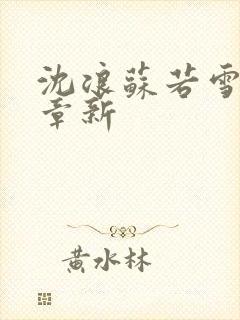 沈浪蘇若雪
章新
黄水林